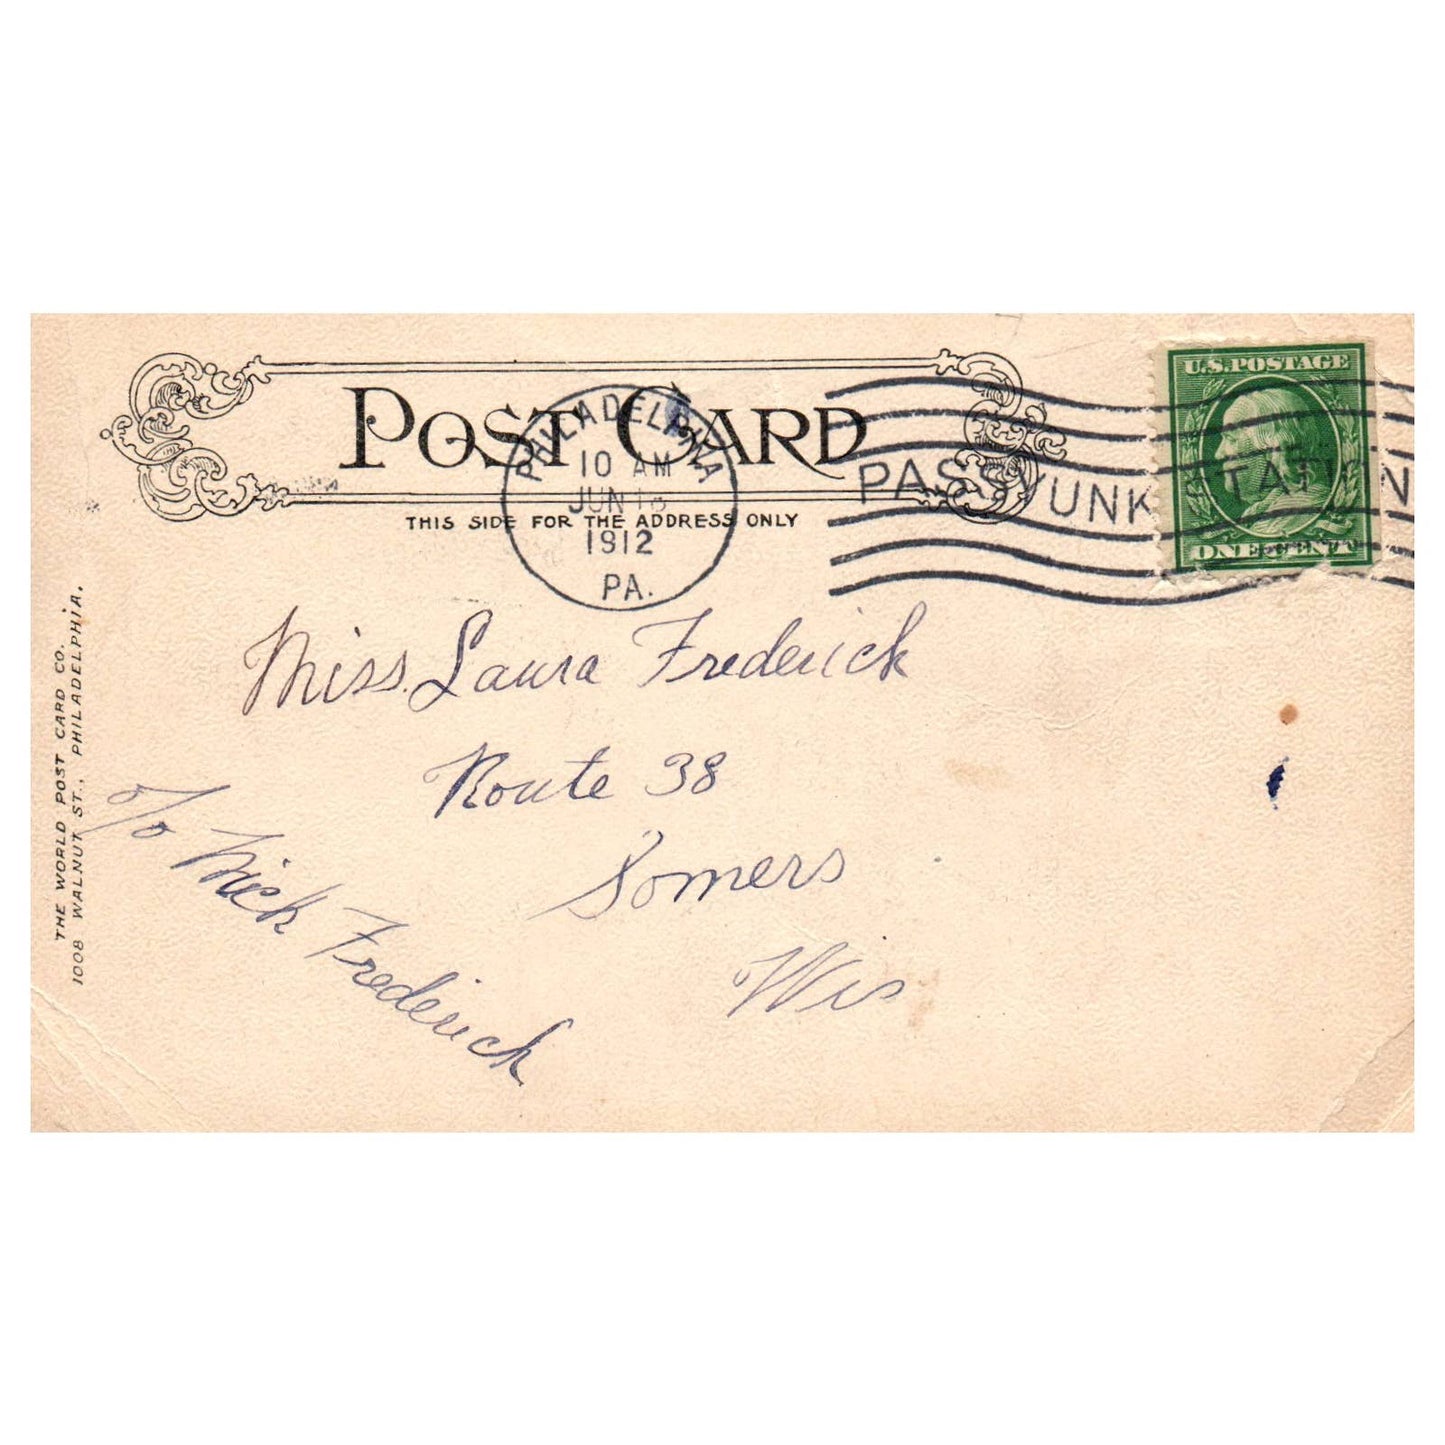 POST CARD
THIS SIDE FOR THE ADDRESS ONLY
PHILADELPHIA
10 AM
JUN
1912
PA.
PASSYUNK STATION
U.S. POSTAGE
ONE CENT
THE WORLD POST CARD CO.
1008 WALNUT ST., PHILADELPHIA.
Miss. Laura Frederick
Route 38
Somers
Wis
c/o Nick Frederick